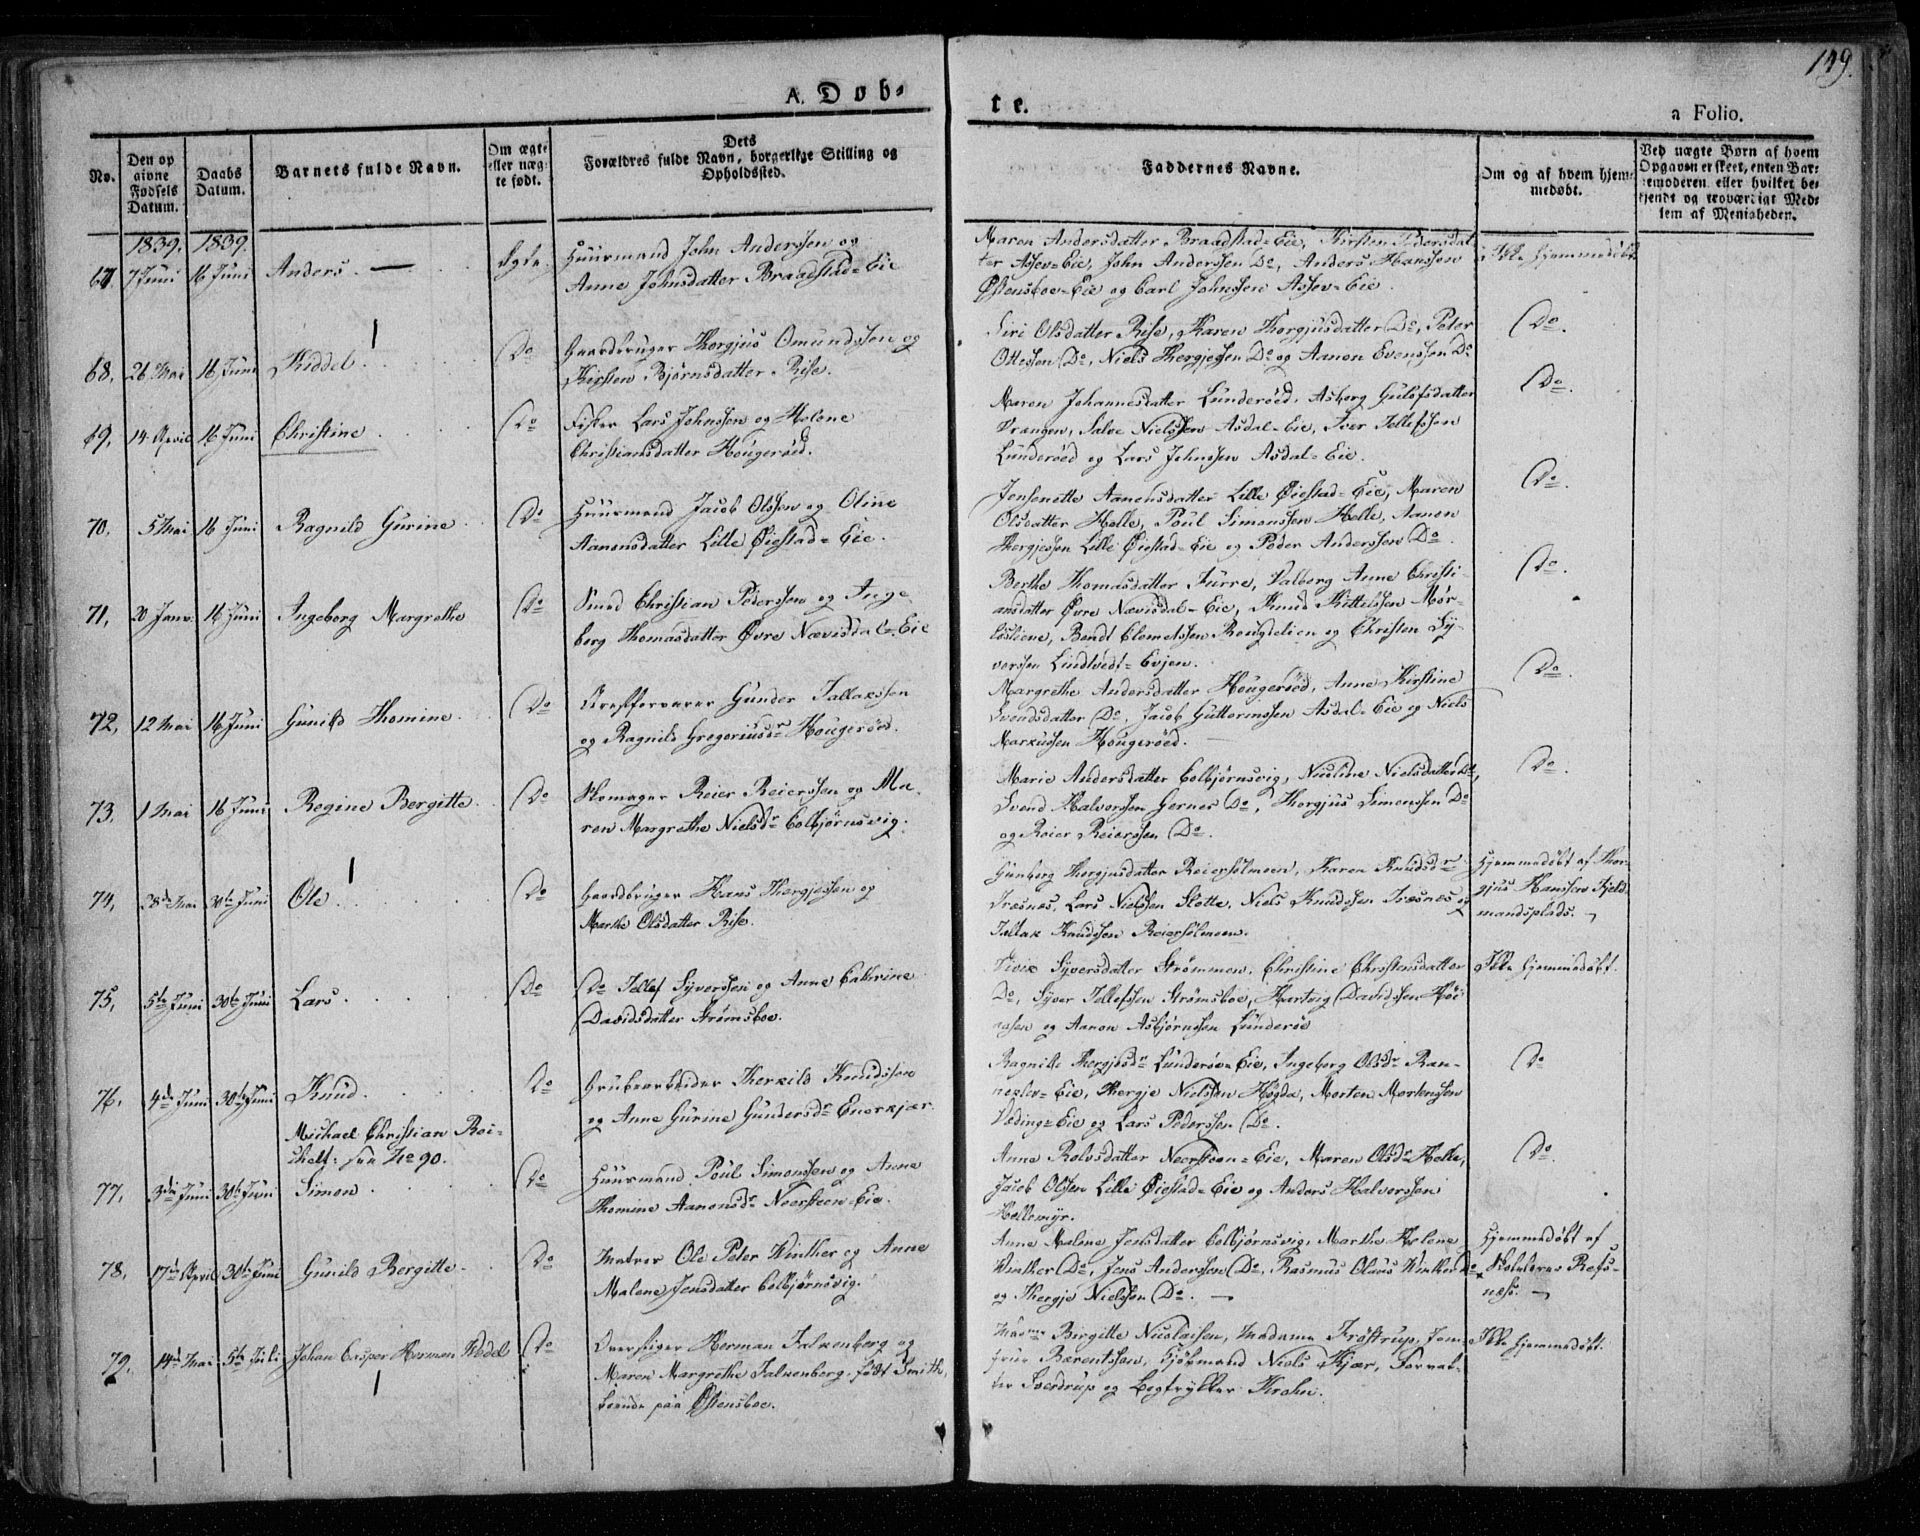 149.
A. Døb-
te.
a Folio.
No.
Den op
givne
Fødsels
Datum.
Daabs
Datum.
Barnets fulde Navn.
Om ægte
eller uæg-
te født.
Dets
Forældres fulde Navn, borgerlige Stilling og
Opholdssted.
Faddernes Navne.
Om og af hvem hjem-
medøbt.
Ved uægte Børn af hvem
Opgaven er skeet, enten Bar-
nemoderen eller hvilket be-
kjendt og troværdigt Med-
lem af Menigheden.
1839. 1839.
67. 7 Juni 16 Juni Anders. Ægte.
Huusmand John Anderssen og
Anne Johnsdatter Braadstad=Eie
Maren Andersdatter Braadstad=Eie, Kirsten Pedersdat-
ter Assev=Eie, John Anderssen Do, Anders Hanssen
Østensboe=Eie og Carl Johnssen Assev=Eie.
Ikke hjemmedøbt
68. 26 Mai 16 Juni Kiddel. Do
Gaardbruger Thorgjus Omundssen og
Kirsten Bjørnsdatter Rise.
Siri Olsdatter Rise, Karen Thorgjusdatter Do, Peter
Ottessen Do, Niels Thergjessen Do og Aanon Evenssen Do
Do.
69. 14 April 16 Juni Christine. Do
Fisker Lars Johnssen og Helene
Christiansdatter Hougerøed.
Maren Johannesdatter Lunderøed, Asberg Gulofsdatter
Vrangen, Salve Nielssen Asdal=Eie, Iver Tellefssen
Lunderøed og Lars Johnssen Asdal=Eie.
Do.
70. 5 Mai 16 Juni Ragnild Gurine. Do
Huusmand Jacob Olssen og Oline
Aanonsdatter Lille Øiestad=Eie.
Jensenette Aanensdatter Lille Øiestad=Eie, Maren
Olsdatter Helle, Poul Simonssen Helle, Aanon
Thergjessen Lille Øiestad=Eie og Peder Anderssen Do.
Do.
71. 20 Janv. 16 Juni Ingeborg Margrethe Do
Smed Christian Pederssen og Inge-
berg Thomasdatter Øvre Nævisdal=Eie
Berthe Thomasdatter Furre, Valborg Anne Christi-
ansdatter Øvre Nævisdal=Eie, Knud Kittelssen Mør-
Bendt Clemetssen Rougdelien og Christen Sy-
verssen Lindtvedt=Evjen.
Do.
72. 12 Mai 16 Juni Gunild Thomine. Do
Arrestforvarer Gunder Tallakssen
og Ragnild Gregoriusdr Hougerøed.
Margrethe Andersdatter Hougerøed, Anne Kirstine
Svendsdatter Do, Jacob Guttormssen Asdal=Eie og Niels
Markussen Hougerøed.
Do.
73. 1 Mai 16 Juni Regine Bergitte. Do
Skomager Reier Reierssen og Ma-
ren Margrethe Nielsdr Colbjørnsvig.
Marie Andersdatter Colbjørnsvig, Nicoline Nielsdatter Do,
Svend Halvorssen Gernes Do, Thorgjus Simonssen Do
og Reier Reierssen Do.
Do.
74. 28de Mai 30te Juni Ole. Do
Gaardbruger Hans Thergjessen og
Marthe Olsdatter Rise.
Gunborg Thergjusdatter Reiersølmoen, Karen Knudsdr
Træsnes, Lars Nielssen Slotte, Niels Knudssen Træsnes og
Tallak Knudssen Reiersølmoen.
Hjemmedøbt af Thor-
gjus Hanssen Fjeld-
mandsplads.
75. 5te Juni 30te Juni Lars. Do
Do Tellef Syverssen og Anne Cathrine
Davidsdatter Strømsboe.
Syversdatter Strømmen, Christine Christensdatter
Do, Syver Tellefssen Strømsboe, Hartvig Davidssen Høi-
aasen og Aanon Asbjørnssen Lunderøe
Ikke hjemmedøbt.
76. 4de Juni 30te Juni Knud. Do
Grubearbeider Therkild Knudssen
og Anne Gurine Gundersdr Enerkjær.
Ragnild Thergjesdr Lunderøv=Eie, Ingeborg Olsdr Ran-
neklev=Eie, Thergje Nielssen Høgda, Morten Mortenssen
Væding=Eie og Lars Pederssen Do.
Do
Michael Christian Rei-
chelt: see No 90.
77. 3die Juni 30te Juni Simon. Do
Huusmand Poul Simonssen og Anne
Thomine Aanonsdr Neersteen=Eie.
Anne Rolvsdatter Neersteen=Eie, Maren Olsdr Helle,
Jacob Olssen Lille Øiestad=Eie og Anders Halvorssen
Hellemyr.
Do
78. 17de April 30te Juni Gunild Bergitte. Do
Matros Ole Peter Winther og Anne
Malene Jensdatter Colbjørnsvig.
Anne Malene Jensdatter Colbjørnsvig, Marthe Helene
Winther Do, Jens Anderssen Do, Rasmus Olaus Winther Do
og Thergje Nielssen Do.
Hjemmedøbt af
Refs-
næs.
79. 14de Mai 5te Juli Johan Casper Herman Wedel Do
Overstiger Herman Falkenberg og
Maren Margrethe Falkenberg, født Smith,
boende paa Østensboe.
Madme Birgitte Nicolaisen, Madame Frøstrup, Jom-
frue Bærentssen, Kjøbmand Niels Kjær, Forval-
ter Sverdrup og Bogtrykker Krohn.
Ikke hjemmedøbt.